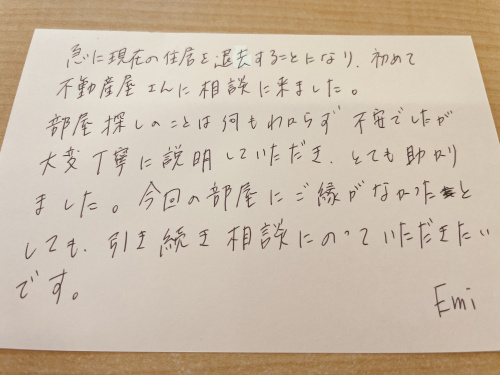 急に現在の住居を退去することになり、初めて
不動産屋さんに相談に来ました。
部屋探しのことは何もわからず不安でしたが
大変丁寧に説明していただき、とても助かり
ました。今回の部屋にご縁がなかったと
しても、引き続き相談にのっていただきたい
です。
Emi